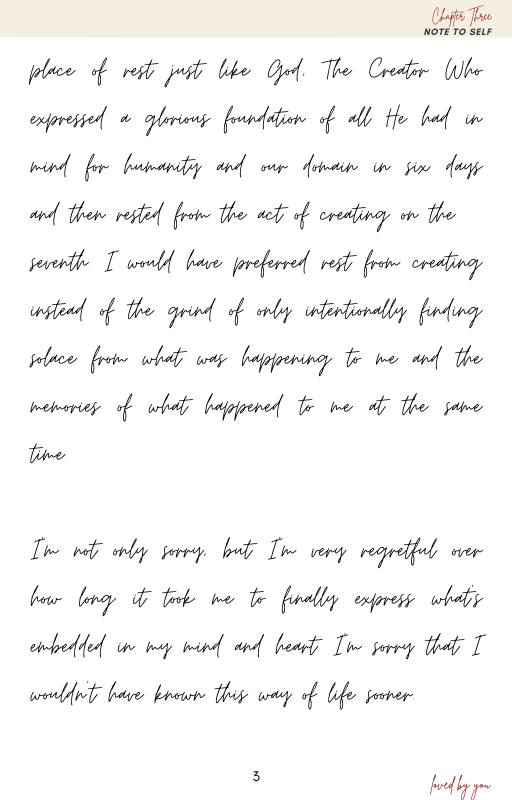 Chapter Three
NOTE TO SELF
place of rest just like God, The Creator Who
expressed a glorious foundation of all He had in
mind for humanity and our domain in six days
and then rested from the act of creating on the
seventh. I would have preferred rest from creating
instead of the grind of only intentionally finding
solace from what was happening to me and the
memories of what happened to me at the same
time.
I'm not only sorry, but I'm very regretful over
how long it took me to finally express what's
embedded in my mind and heart. I'm sorry that I
wouldn't have known this way of life sooner.
3
loved by you